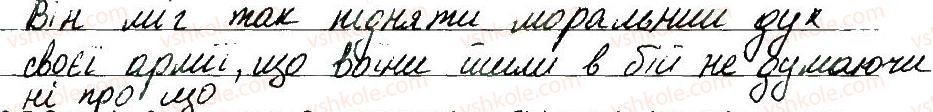 Він міг так підняти моральний дух
своєї армії, що воїни йшли в бій не думаючи
ні про що